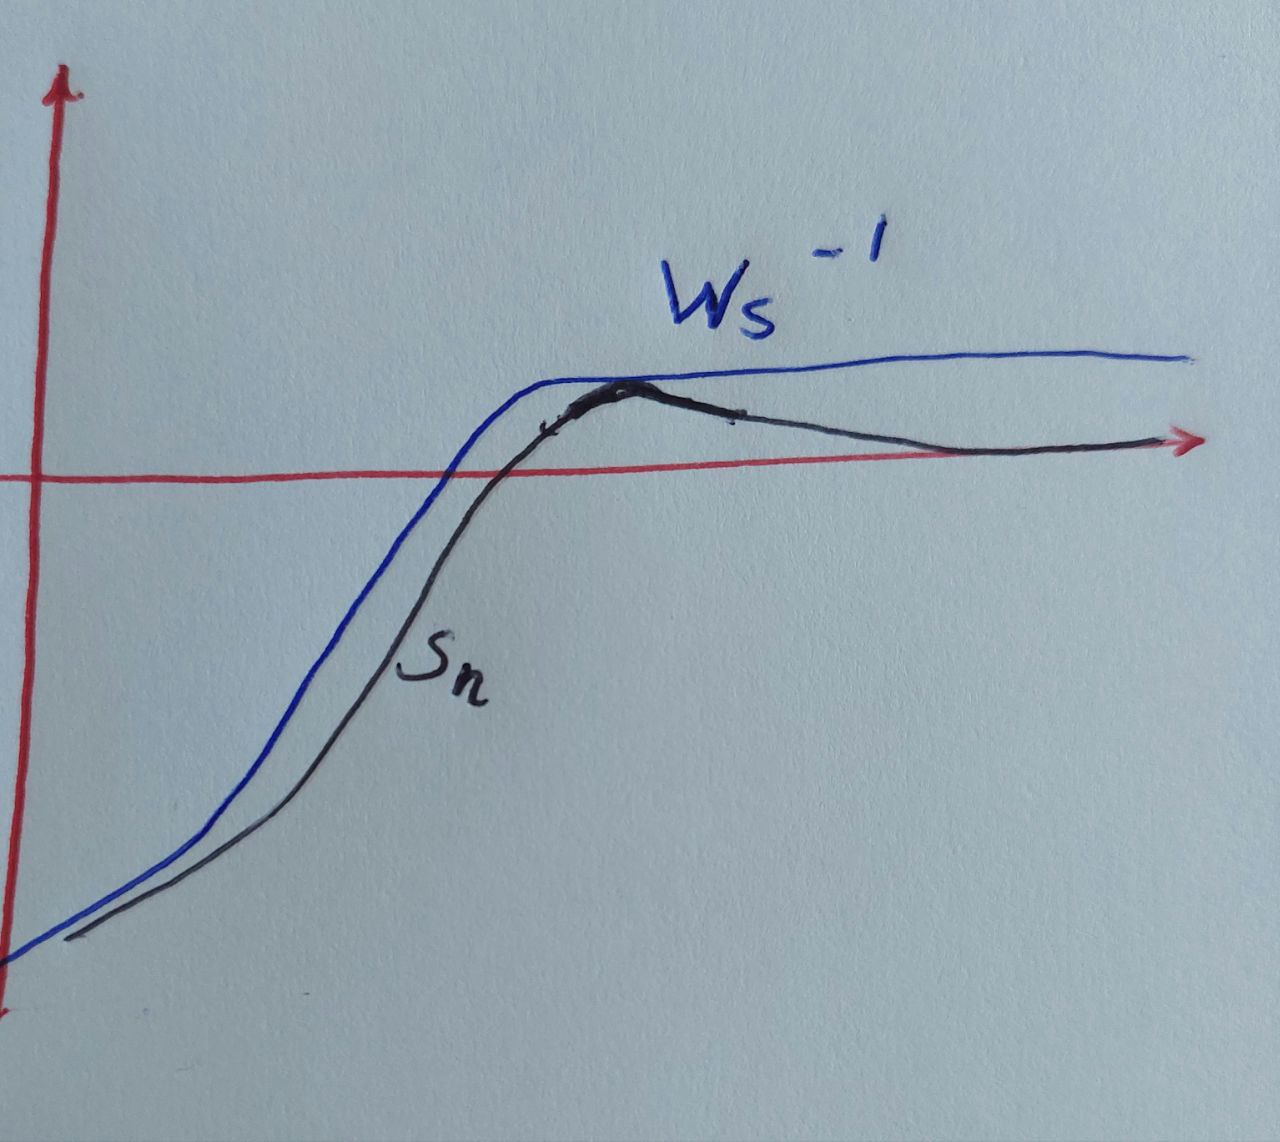 Ws -1
Sn